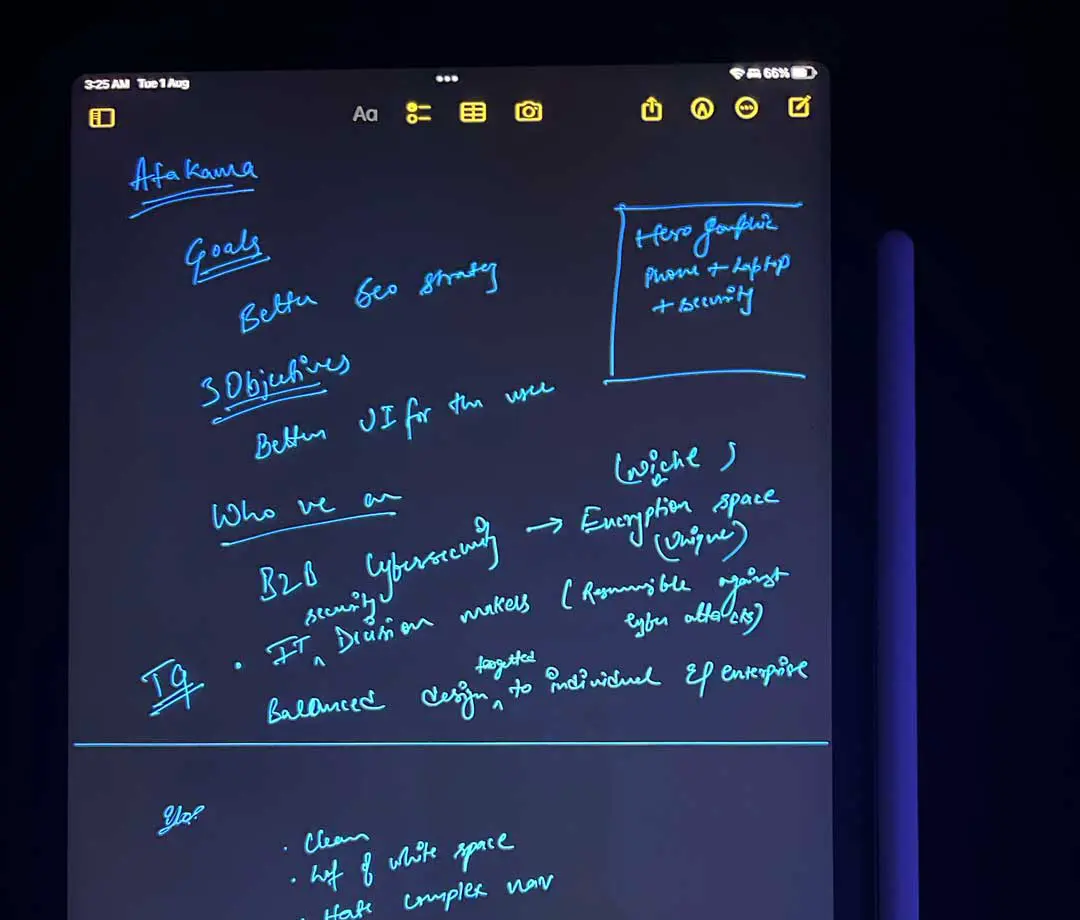 3:25 AM Tue 1 Aug
66%
Aa
Atakama
Goals
Better Seo strategy
Hero graphic
Phone + Laptop
+ security
3 Objectives
Better UI for the user
Who we are
(Niche)
B2B Cybersecurity → Encryption space
(Unique)
TG
• IT security Decision makers (Responsible against
cyber attacks)
Balanced design targetted to individual & enterprise
• Clean
• lot of white space
• Hate complex nav